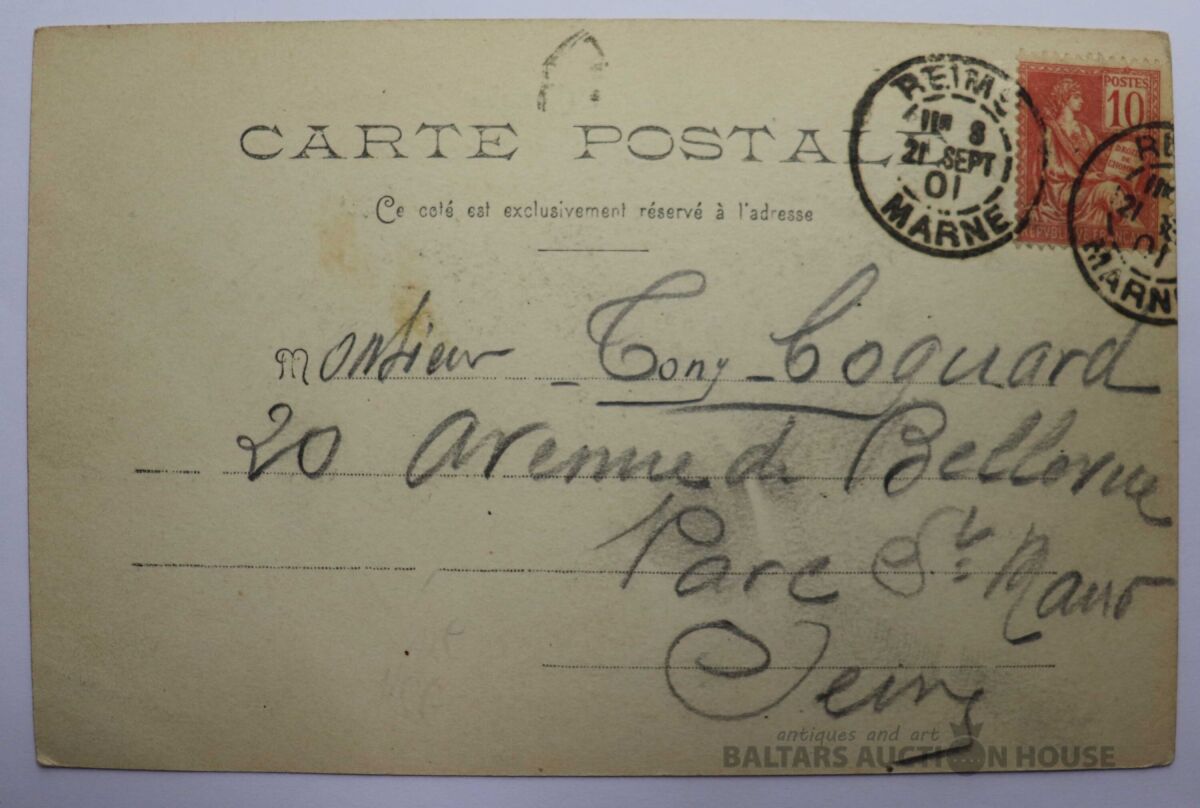 CARTE POSTALE
Ce coté est exclusivement réservé à l'adresse
REIMS
8
21 SEPT
01
MARNE
POSTES
10
DROITS
DE
L'HOMME
REPVBLIQVE FRANÇAISE
21
01
MARNE
Monsieur Tony Coquard
20 Avenue de Bellevue
Parc St. Maur
Seine
antiques and art
BALTARS AUCTION HOUSE